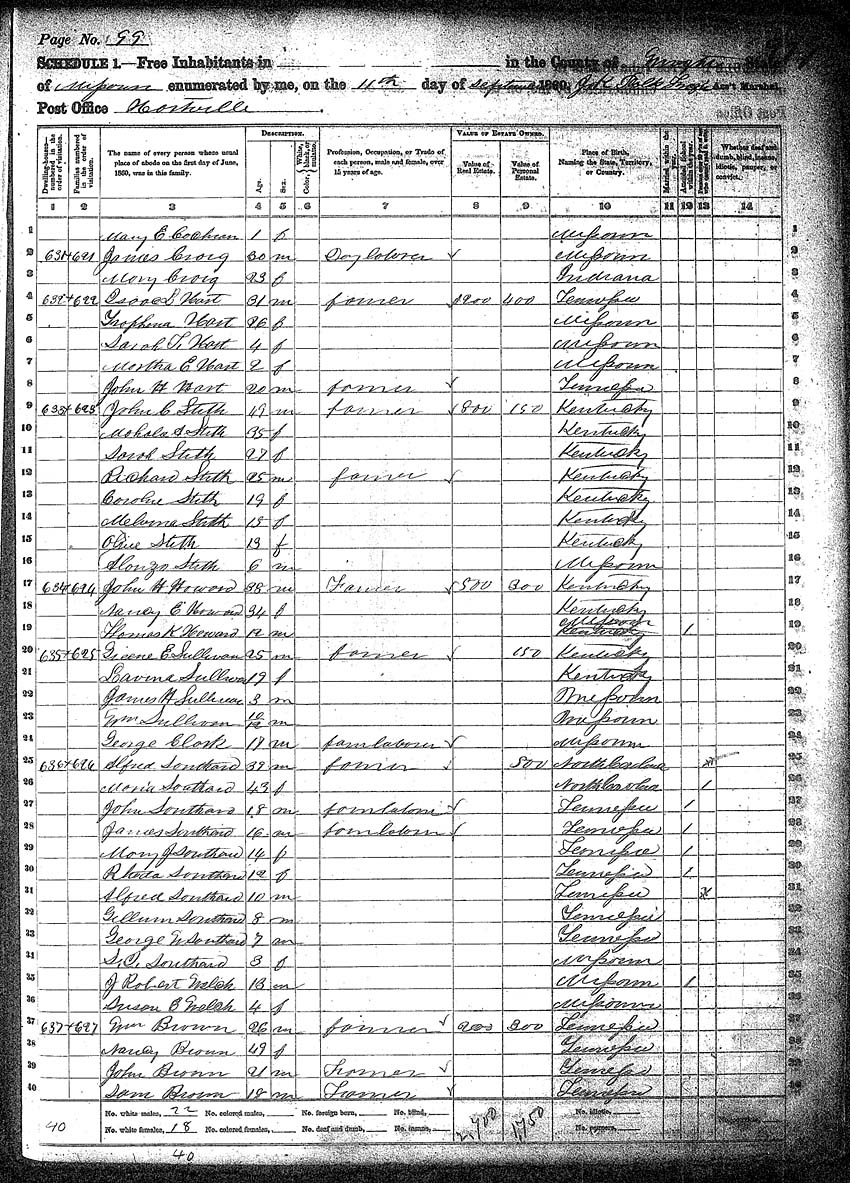 Page No. 99
SCHEDULE 1.—Free Inhabitants in in the County of State
of Missouri enumerated by me, on the 11th day of September 1860. Ass't Marshal.
Post Office Hartville
DESCRIPTION. VALUE OF ESTATE OWNED.
Dwelling-houses—numbered in the order of visitation. Families numbered in the order of visitation. The name of every person whose usual place of abode on the first day of June, 1860, was in this family. Age. Sex. Color, White, black, or mulatto. Profession, Occupation, or Trade of each person, male and female, over 15 years of age. Value of Real Estate. Value of Personal Estate. Place of Birth, Naming the State, Territory, or Country. Married within the year. Attended School within the year. Whether deaf and dumb, blind, insane, idiotic, pauper, or convict.
1 2 3 4 5 6 7 8 9 10 11 12 13 14
1 Mary E Cochran 1 f Missouri 1
2 631 621 James Craig 30 m Day laborer Missouri 2
3 Mary Craig 23 f Indiana 3
4 632 622 Isaac L Hart 31 m farmer 1200 400 Tennessee 4
5 Trophena Hart 26 f Missouri 5
6 Sarah T. Hart 4 f Missouri 6
7 Martha E Hart 2 f Missouri 7
8 John H Hart 20 m farmer Tennessee 8
9 633 623 John C Stith 49 m farmer 800 150 Kentucky 9
10 Mahala S Stith 35 f Kentucky 10
11 Sarah Stith 27 f Kentucky 11
12 Richard Stith 25 m farmer Kentucky 12
13 Caroline Stith 19 f Kentucky 13
14 Melvina Stith 15 f Kentucky 14
15 Olive Stith 13 f Kentucky 15
16 Alonzo Stith 6 m Missouri 16
17 634 624 John H Howard 38 m Farmer 500 300 Kentucky 17
18 Nancy E Howard 34 f Kentucky 18
19 Thomas K Howard 12 m Missouri Kentucky 1 19
20 635 625 E Sullivan 25 m farmer 150 Kentucky 20
21 Lavina Sullivan 19 f Kentucky 21
22 James H Sullivan 3 m Missouri 22
23 Wm Sullivan 10/12 m Missouri 23
24 George Clark 17 m farm laborer Missouri 24
25 636 626 Alfred Southard 39 m farmer 500 North Carolina 25
26 Maria Southard 43 f North Carolina 1 26
27 John Southard 18 m farm laborer Tennessee 1 27
28 James Southard 16 m farm laborer Tennessee 1 28
29 Mary J Southard 14 f Tennessee 1 29
30 Rhoda Southard 12 f Tennessee 1 30
31 Alfred Southard 10 m Tennessee 31
32 Gillum Southard 8 m Tennessee 32
33 George W Southard 7 m Tennessee 33
34 S. C. Southard 3 f Missouri
35 J Robert Welch 13 m Missouri 1
36 Susan E Welch 4 f Missouri
37 637 627 Wm Brown 26 m farmer 200 Tennessee
38 Nancy Brown 49 f Tennessee
39 John Brown 21 m Farmer Tennessee
40 Sam Brown 18 m Farmer Tennessee
No. white males, 22 No. colored males, No. foreign born, No. blind, No. idiotic,
40 No. white females, 18 No. colored females, No. deaf and dumb, No. insane, 2,400 1,750 No. paupers,
40